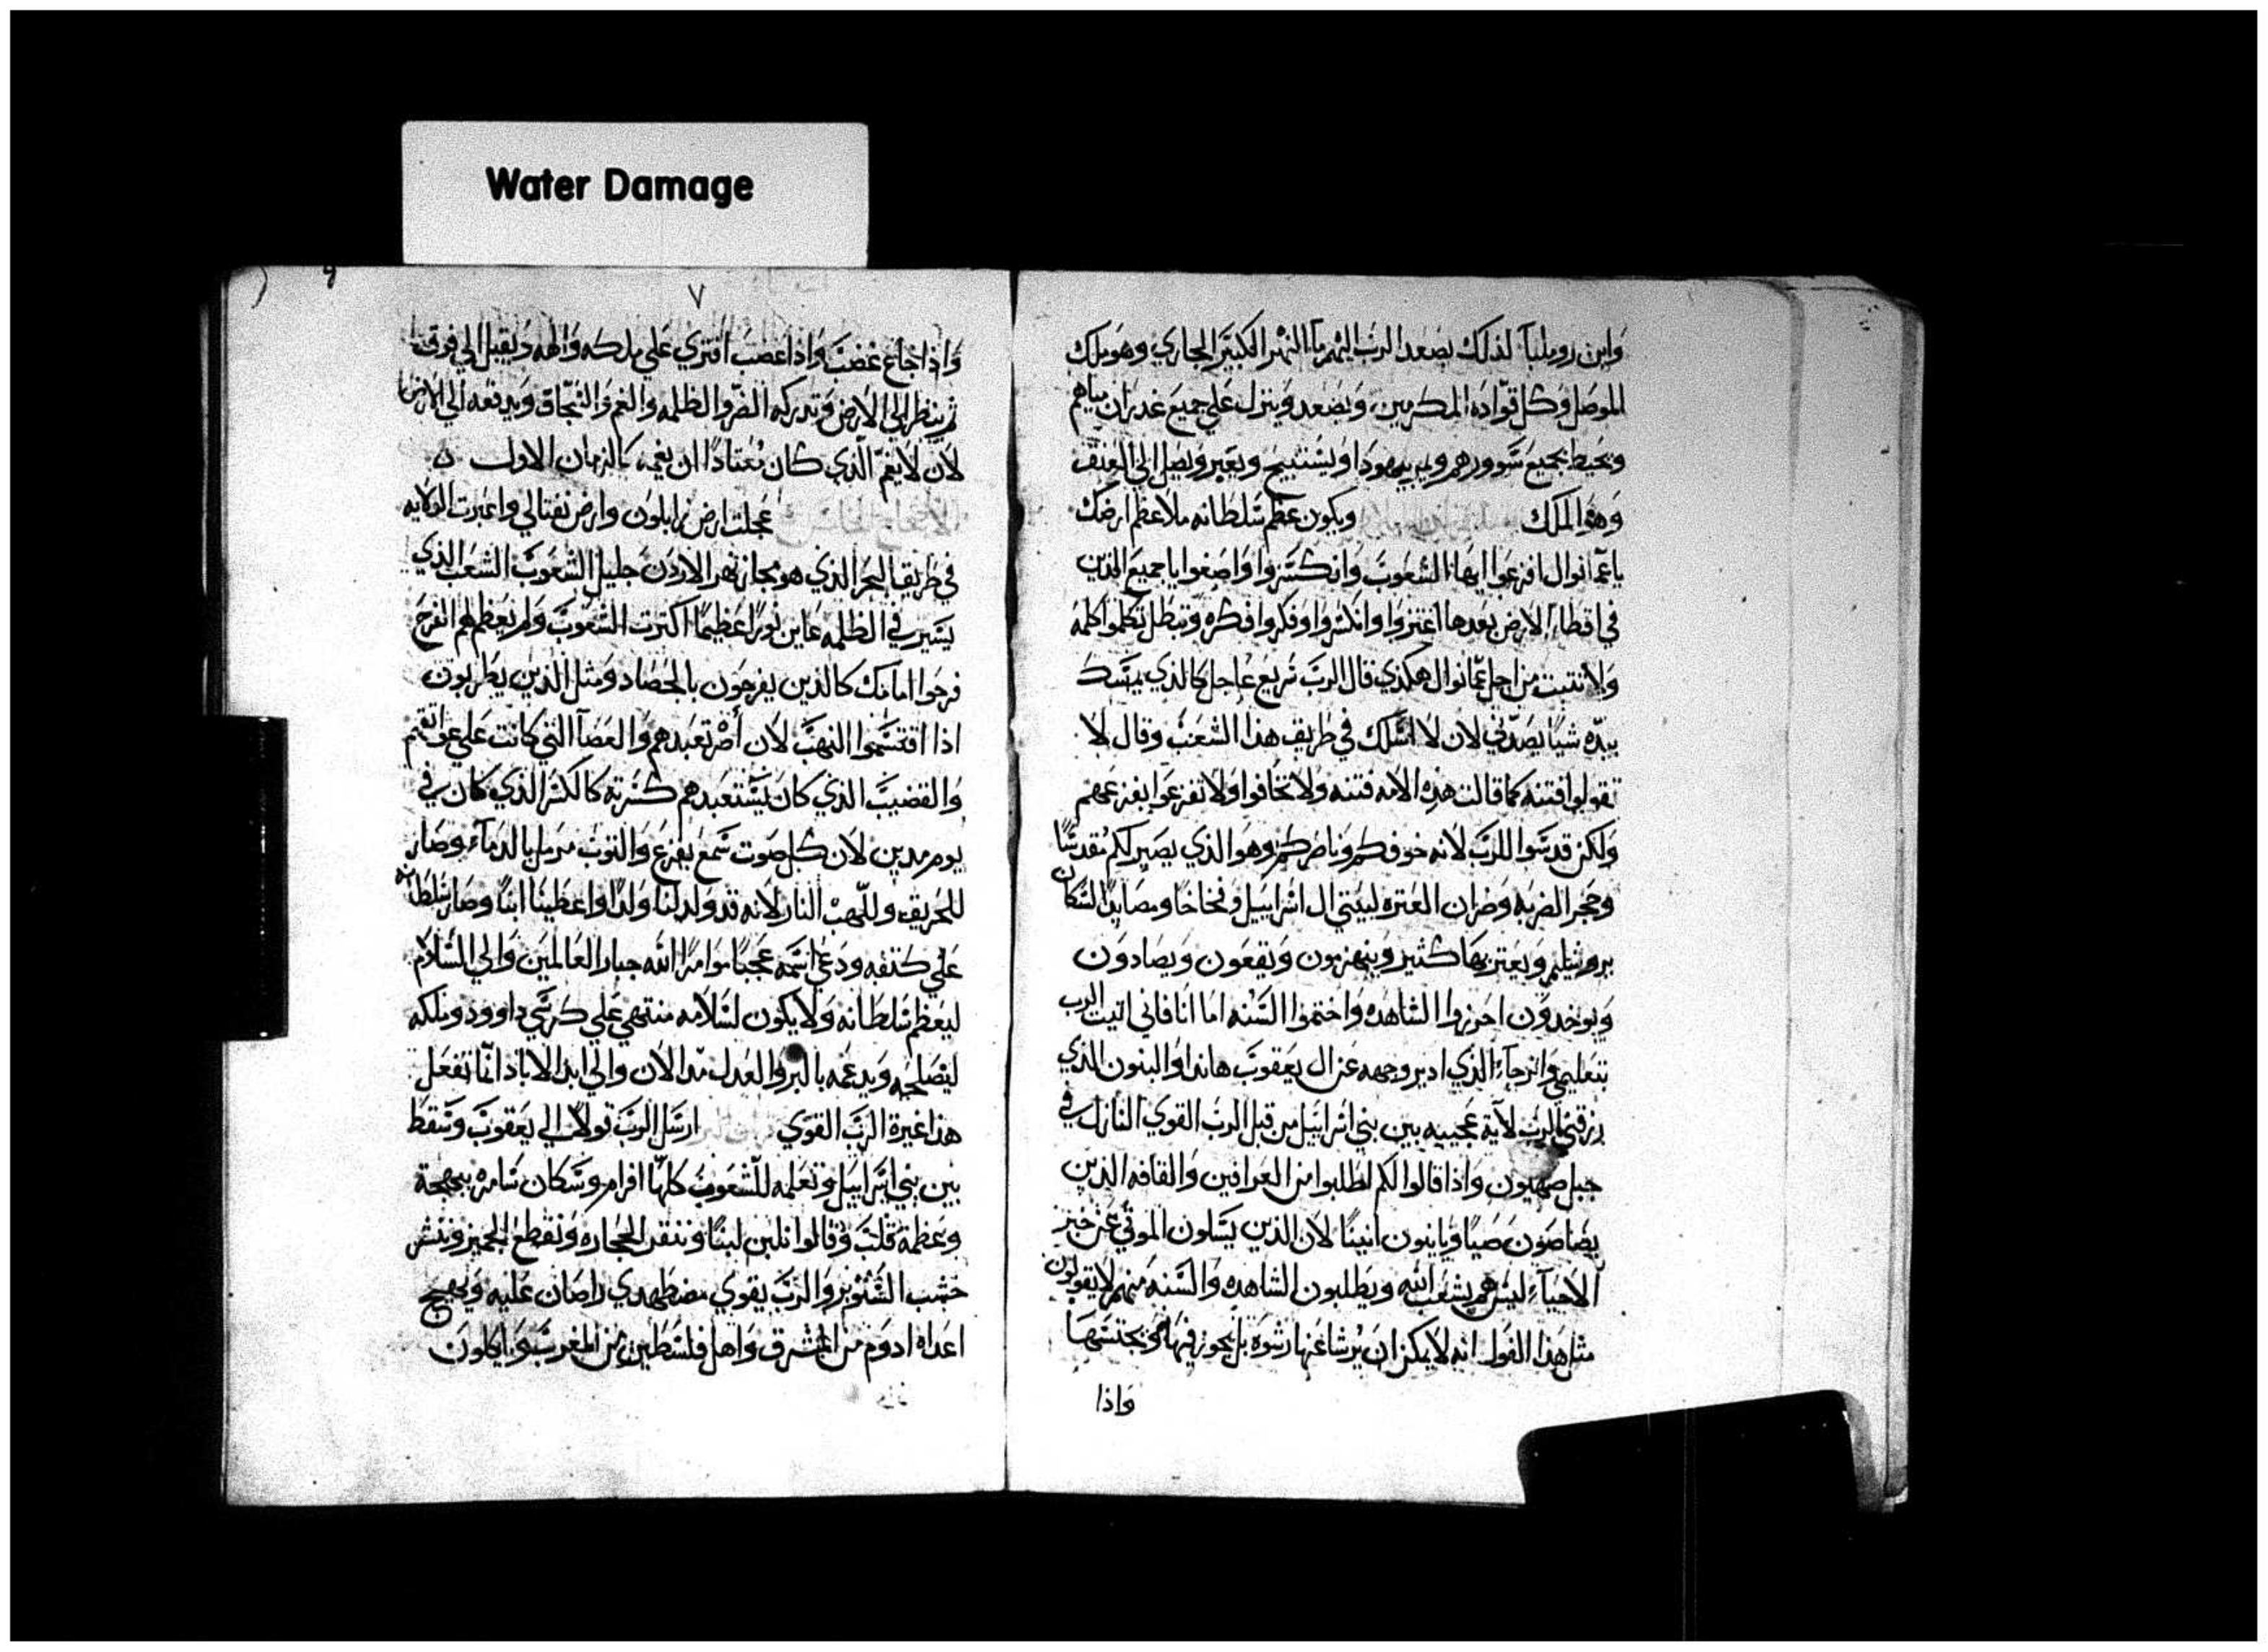 Water Damage
وابن روميليا لذلك يصعد الرب اليهم ما النهر الكبير الجاري وهو ملك
الموصل وكل قواده المكرمين ويصعد وينزل على جميع غدران مياهم
ويحيط بجميع سوورهم ويستبيح ويعبر ويصل الي العنق
وهو الملك ويكون عظم سلطانه ملا عظم ارضك
يا عمانوال افزعوا ايها الشعوب وانكسروا واصغوا يا جميع الذين
في اقطار الارض بعدها اعتزوا وانكسروا وفكروا فكره وتبطل تكلموا كلمه
ولا تثبت من اجل عمانوال هكذي قال الرب سريع عاجل كالذي يمسك
بيده شيا يصدني لان لا اسلك في طريق هذا الشعب وقال لا
تقولوا فتنه كما قالت هذه الامه فتنه ولا تخافوا ولا تفزعوا بفزعهم
ولكن قدسوا للرب لانه خوفكم وناصركم وهو الذي يصير لكم مقدسا
وحجر الضربه وضران العتره لبيتي ال اسراييل وفخاخا ومصايدا لسكان
بروشليم ويعتر بها كثير وينهزمون ويقعون ويصادون
ويوخدون احرزوا الشاهده واختموا السنه اما انا فاني اتيت الرب
بتعليمي وارجاء الذي ادير وجهه عن ال يعقوب هانذا والبنون الذي
رزقني الرب لآية عجيبه بين بني اسراييل من قبل الرب القوي النازل في
جبل صهيون واذا قالوا لكم اطلبوا من العرافين والقافه الذين
يصاصون صيا ويانون انينا لان الذين يسلون الموتي عن خبر
الاحياء ليس هم بشعب الله ويطلبون الشاهده والسنه منهم لا يقولون
مثل هذا القول انه لا يمكن ان يرشا عنها رشوة بل يجوز فيها
واذا
٧
واذا جاع غضب واذا غضب افتري علي ملكه والهه ويقبل الي فوق
ثم ينظر الي الارض وتدركه الضر والظلمه والغم ويدفعه الي الارض
لان لا يغم الذي كان معتادا ان يغمه كالزمان الاول
عجلت ارض زابلون وارض نفتالي واعتزت الولايه
في طريق البحر الذي هو مجاز نهر الاردن جليل الشعوب الشعب الذي
يسير في الظلمه عاين نورا عظيما اكثرت الشعوب ولم يعظم لهم الفرح
فرحوا امامك كالذين يفرحون بالحصاد ومثل الذين يطربون
اذا اقتسموا النهب لان تعبدهم والعصا التي كانت علي عواتقهم
والقضيب الذي كان يستعبدهم كسرته كالكسر الذي كان في
يوم مدين لان كل صوت سمع بفزع والثوب مرمل بالدماء وصار
للحريق وللهب النار لانه قد ولد لنا ولدا واعطينا ابنا وصار سلطانه
علي كتفه ودعي اسمه عجبا موامرا الله جبار العالمين والي السلام
ليعظم سلطانه ولا يكون لسلامه منتهي علي كرسي داوود وملكه
ليصلحه ويدعمه بالبر والعدل مدا الان والي ابد الاباد انما تفعل
هذا غيرة الرب القوي ارسل الرب قولا الي يعقوب وسقط
بين بني اسراييل وتعلمه للشعوب كلها افرام وسكان شامره ببهجة
وعظمة قلب وقالوا نلبن لبنا وننقر الحجاره ونقطع الجميز وننشر
خشب الشنوبر والرب يقوي مضطهدي راصان عليه ويهيج
اعداه ادوم من المشرق واهل فلسطين من المغرب وياكلون